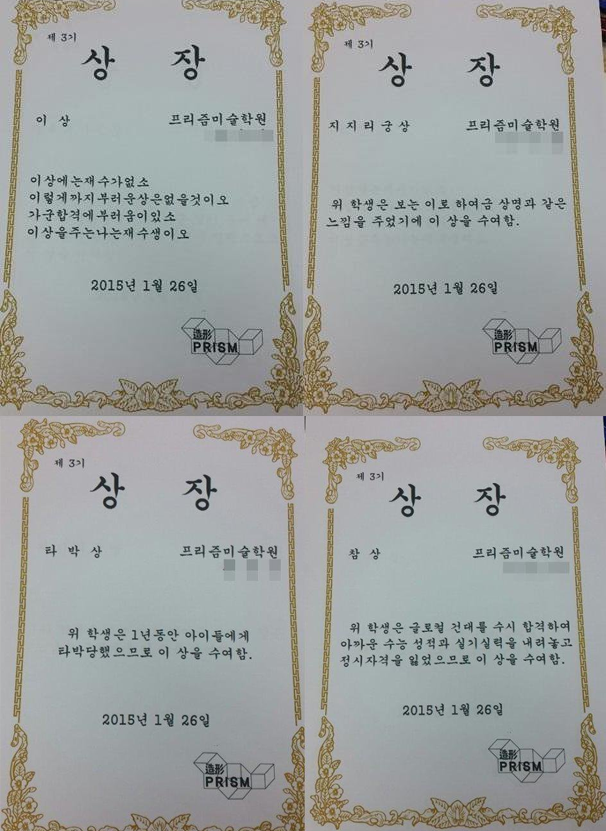 제 3기
상 장
이 상 프리즘미술학원
이상에는재수가없소
이렇게까지부러운상은없을것이오
가군합격에부러움이있소
이상을주는나는재수생이오
2015년 1월 26일
造形
PRISM
제 3기
상 장
지 지 리 궁 상 프리즘미술학원
위 학생은 보는 이로 하여금 상명과 같은
느낌을 주었기에 이 상을 수여함.
2015년 1월 26일
造形
PRISM
제 3기
상 장
타 박 상 프리즘미술학원
위 학생은 1년동안 아이들에게
타박당했으므로 이 상을 수여함.
2015년 1월 26일
造形
PRISM
제 3기
상 장
참 상 프리즘미술학원
위 학생은 글로컬 건대를 수시 합격하여
아까운 수능 성적과 실기실력을 내려놓고
정시자격을 잃었으므로 이 상을 수여함.
2015년 1월 26일
造形
PRISM